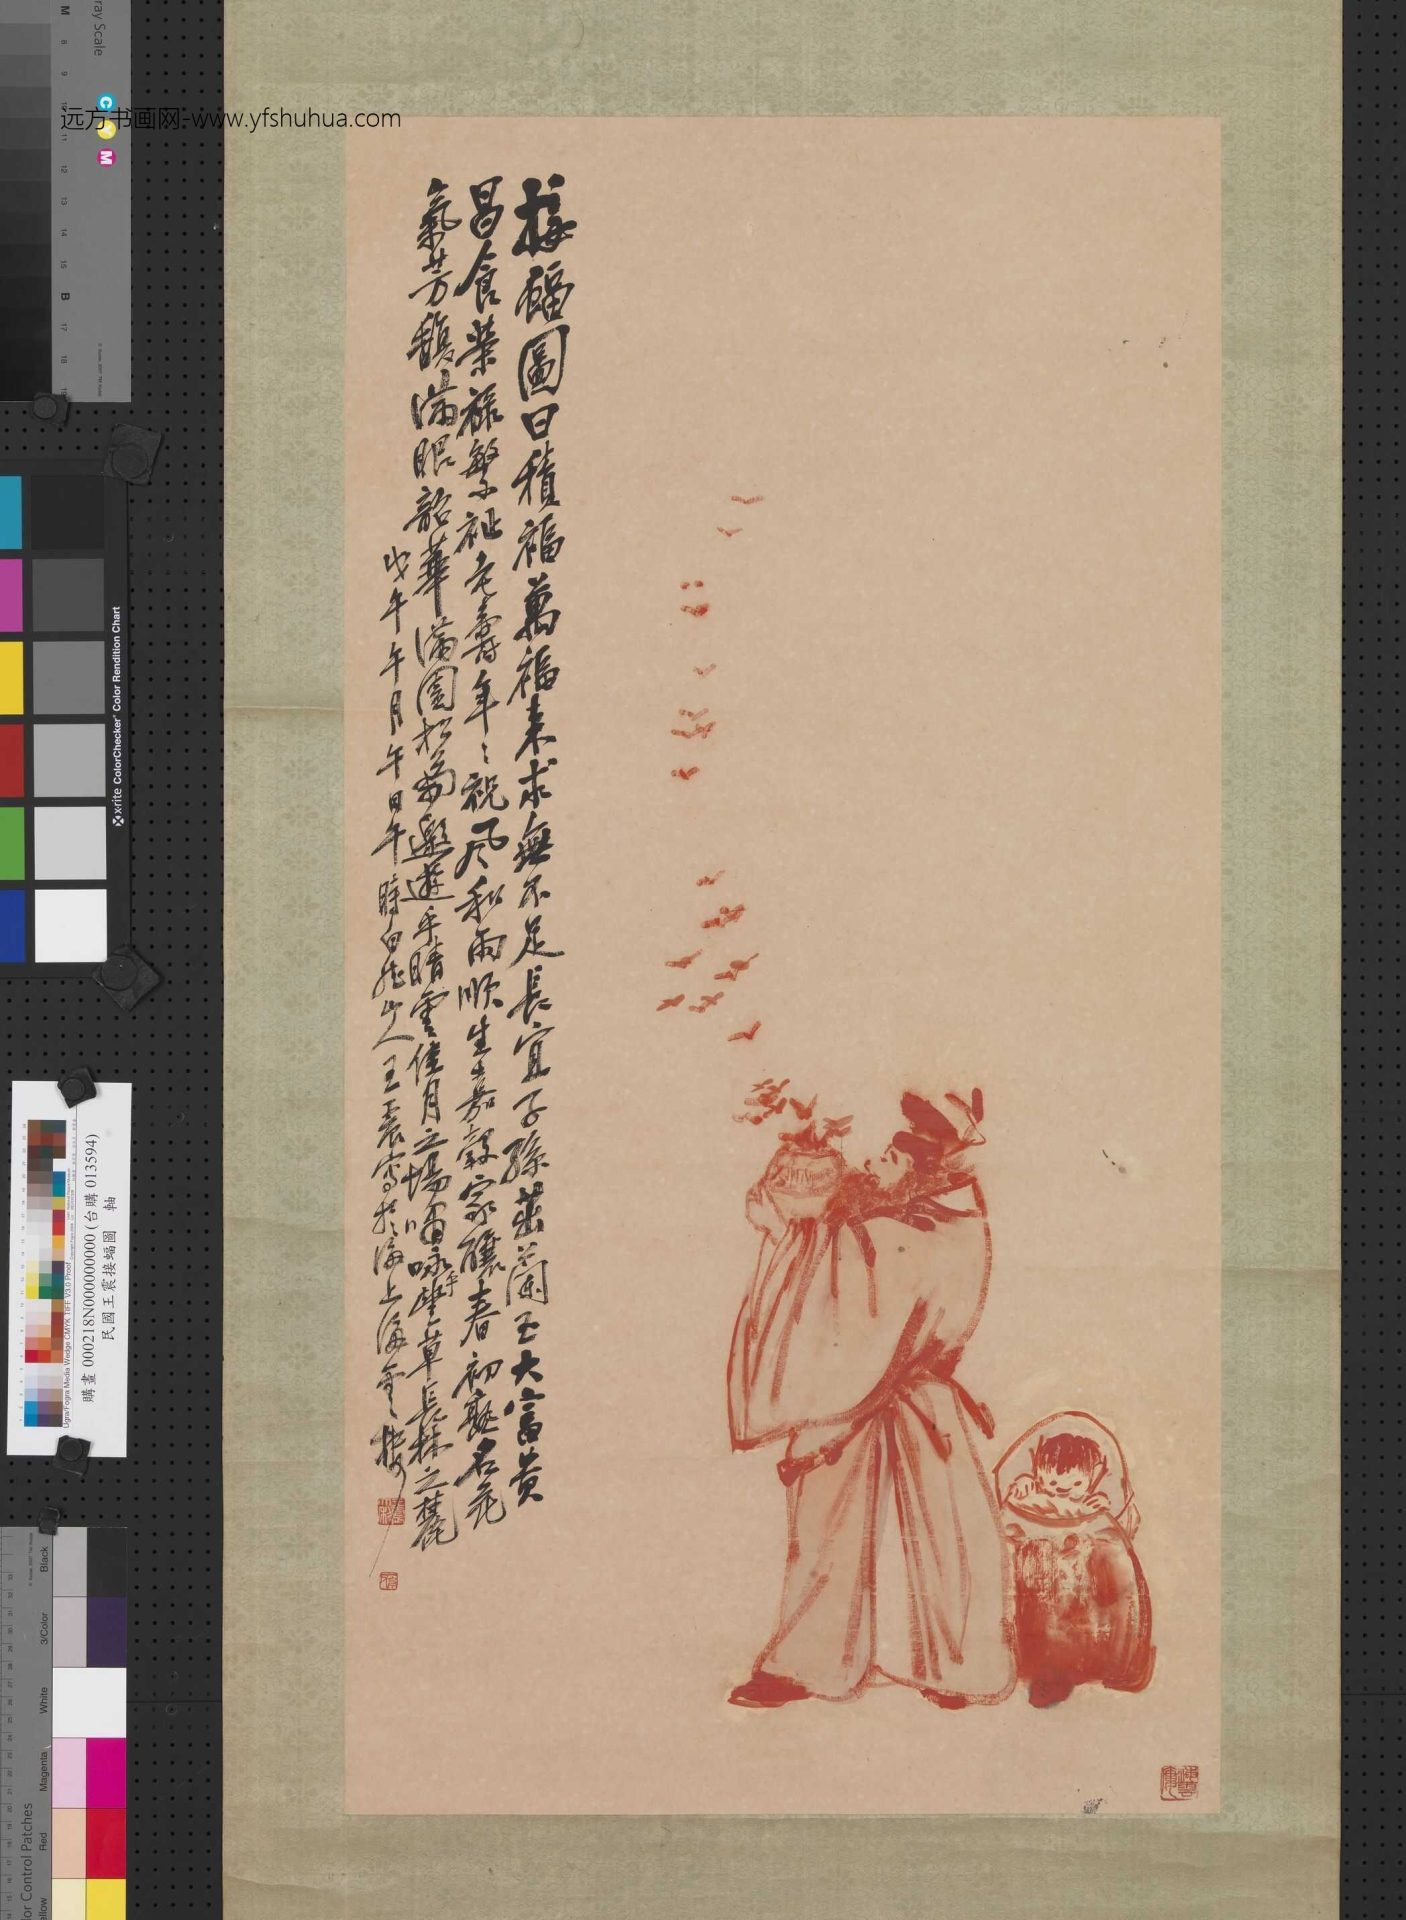 远方书画网-www.yfshuhua.com
接蝠圖曰積福萬福来求無不足長宜子孫茁蘭玉大富貴
昌食榮祿繁祉老壽年年祝風和雨順生嘉穀家釀春初熟名花
氣芳馥滿眼韶華滿園松菊遨遊乎晴雲佳月之場嘯咏乎豐草長林之麓
戊午午月午日午時白龍山人王震寫於海上海雲樓
購畫 000218N000000000 (台購 013594)
民國王震接蝠圖 軸
x-rite ColorChecker® Color Rendition Chart
Ugra/Fogra Media Wedge CMYK TIFF V3.0 Proof
Black
3/Color
White
Magenta
Red
Color Control Patches